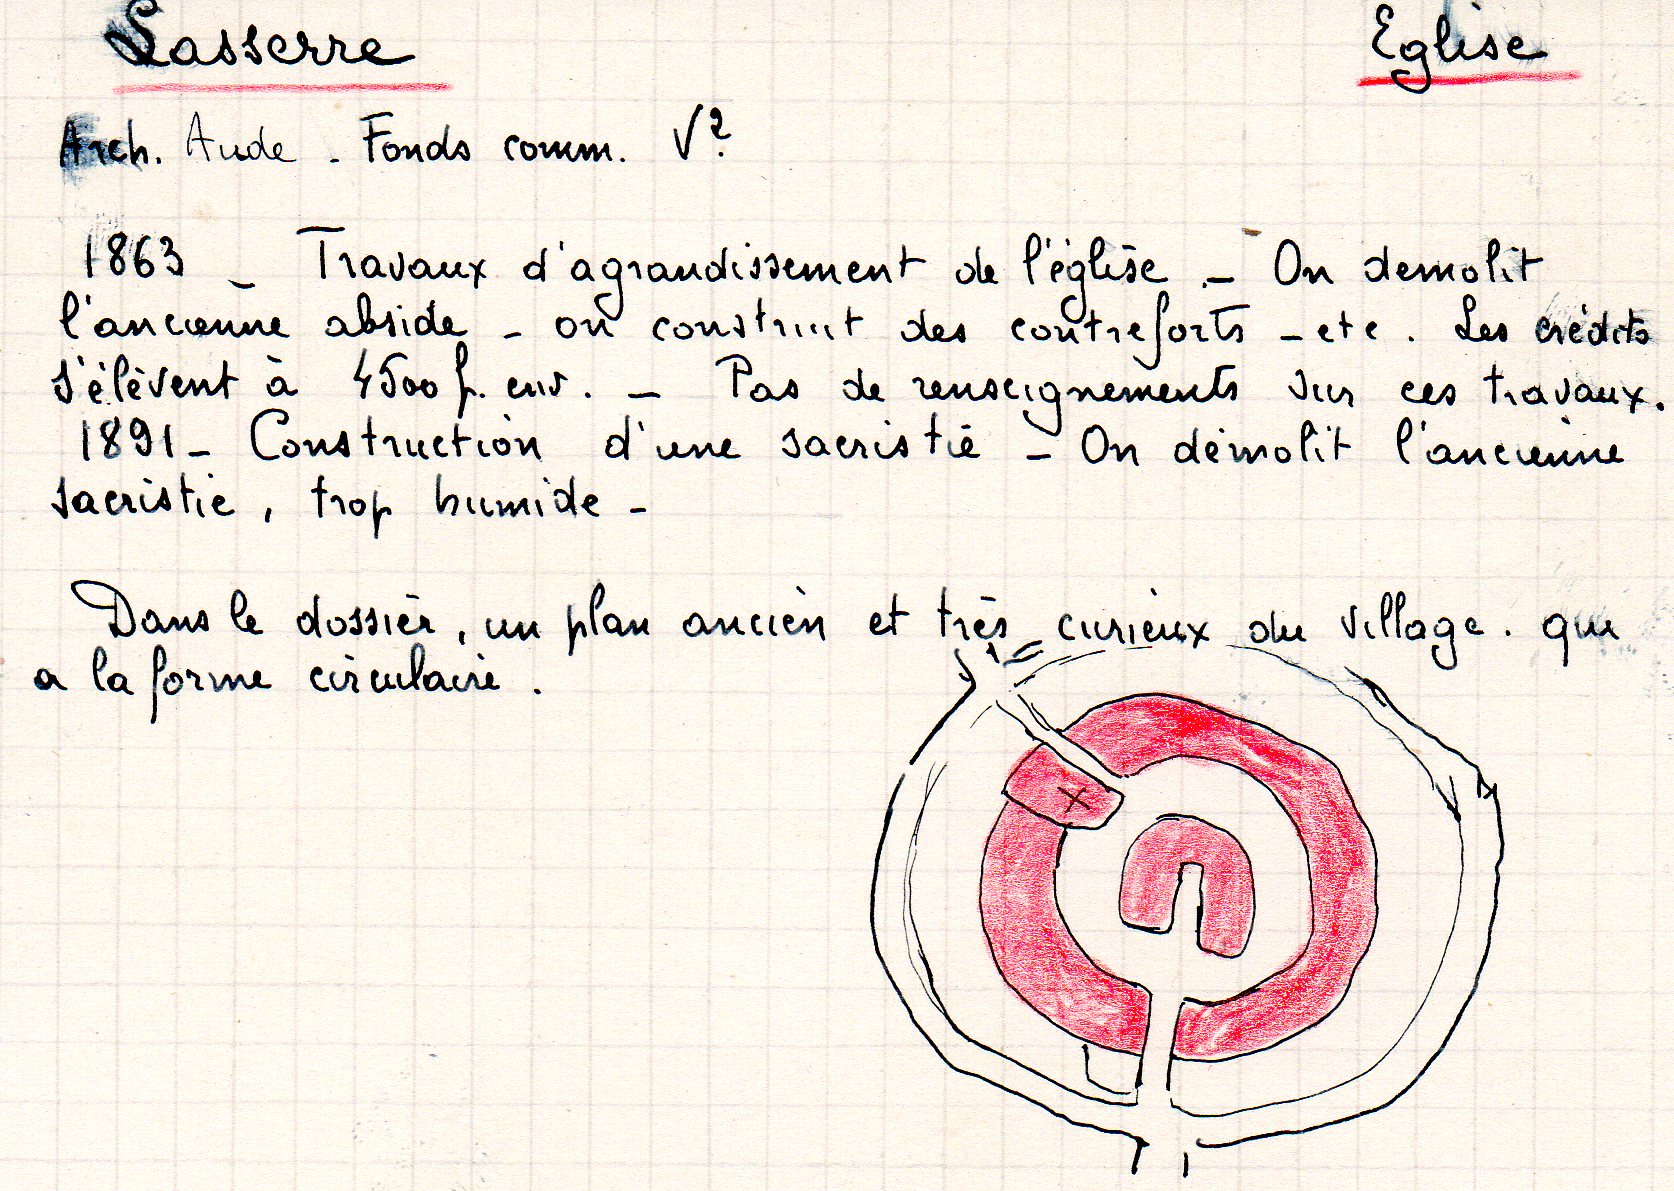 Lasserre Eglise
Arch. Aude - Fonds comm. V?
1863 - Travaux d'agrandissement de l'église - On demolit
l'ancienne abside - on construit des contreforts - etc. Les crédits
s'élèvent à 4500 f. env. - Pas de renseignements sur ces travaux.
1891 - Construction d'une sacristie - On démolit l'ancienne
sacristie, trop humide -
Dans le dossier, un plan ancien et très curieux du village. qui
a la forme circulaire.